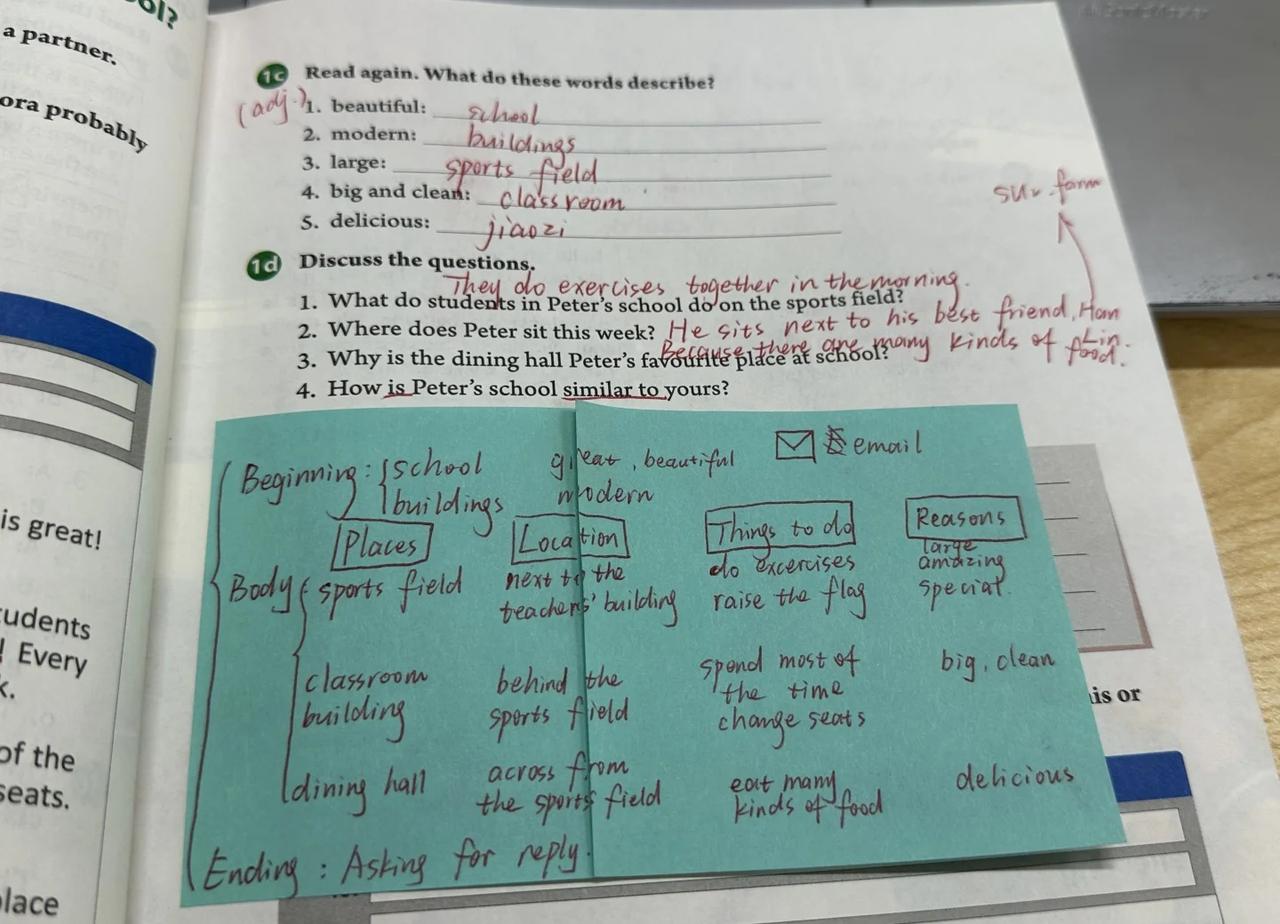 ool?
a partner.
ora probably
is great!
tudents
! Every
k.
of the
seats.
place
1c Read again. What do these words describe?
(adj.) 1. beautiful: school
2. modern: buildings
3. large: sports field
4. big and clean: classroom
5. delicious: jiaozi
1d Discuss the questions.
They do exercises together in the morning.
1. What do students in Peter's school do on the sports field?
2. Where does Peter sit this week? He sits next to his best friend, Han Lin.
Because there are many kinds of food.
3. Why is the dining hall Peter's favourite place at school?
4. How is Peter's school similar to yours?
email
Beginning: school great, beautiful
buildings modern
Places Location Things to do Reasons
Body sports field next to the do excercises large
teachers' building raise the flag amazing
special.
classroom behind the spend most of big, clean
building sports field the time
change seats
dining hall across from eat many delicious
the sports field kinds of food
Ending: Asking for reply.
is or